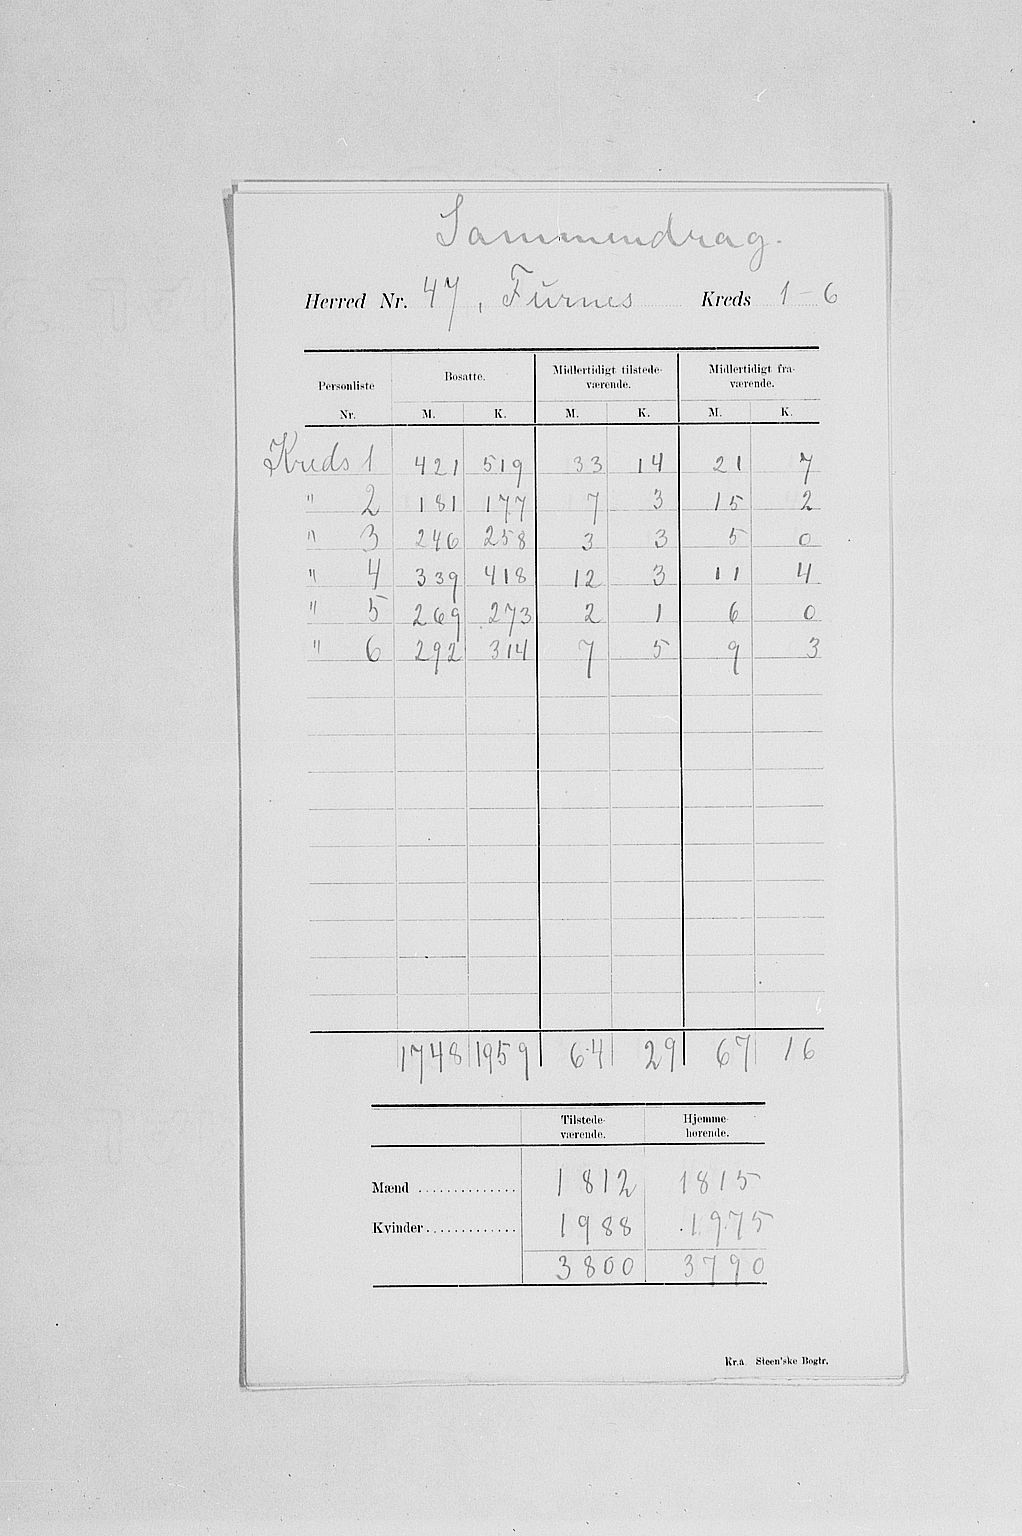 Sammendrag.
Herred Nr. 47, Furnes Kreds 1-6
Personliste Nr. Bosatte. Midlertidigt tilstede-værende. Midlertidigt fra-værende.
M. K. M. K. M. K.
Kreds 1 421 519 33 14 21 7
" 2 181 177 7 3 15 2
" 3 246 258 3 3 5 0
" 4 339 418 12 3 11 4
" 5 269 273 2 1 6 0
" 6 292 314 7 5 9 3
1748 1959 64 29 67 16
Tilstede-værende. Hjemme-hørende.
Mænd .............. 1812 1815
Kvinder............. 1988 1975
3800 3790
Kr.a. Steen'ske Bogtr.